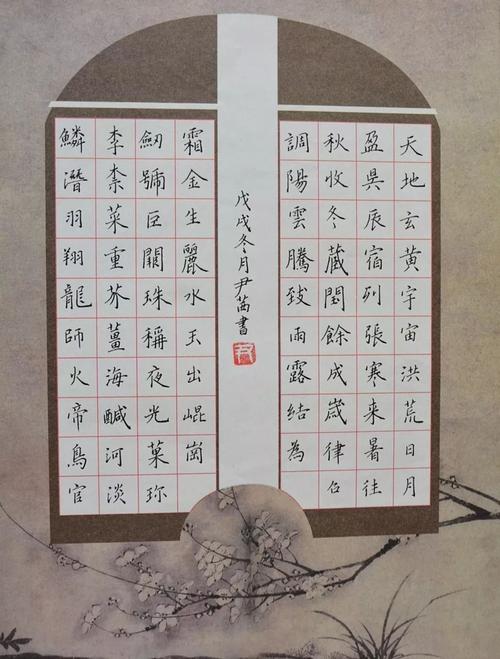 天地玄黃宇宙洪荒日月
盈昃辰宿列張寒来暑往
秋收冬藏閏餘成歲律吕
調陽雲騰致雨露結為
霜金生麗水玉出崐崗
劒號巨闕珠稱夜光菓珍
李柰菜重芥薑海鹹河淡
鱗潛羽翔龍師火帝鳥官
戊戌冬月尹書